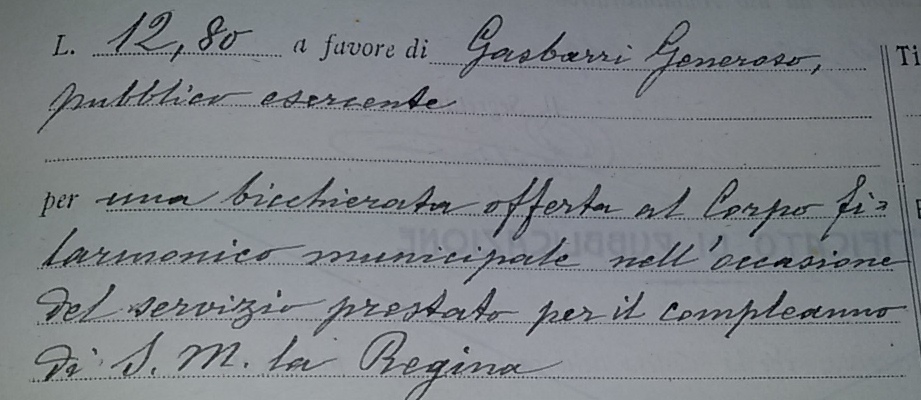 L. 12,80 a favore di Gasbarri Generoso,
pubblico esercente
per una bicchierata offerta al Corpo fi=
larmonico municipale nell'occasione
del servizio prestato per il compleanno
di S. M. la Regina
Ti